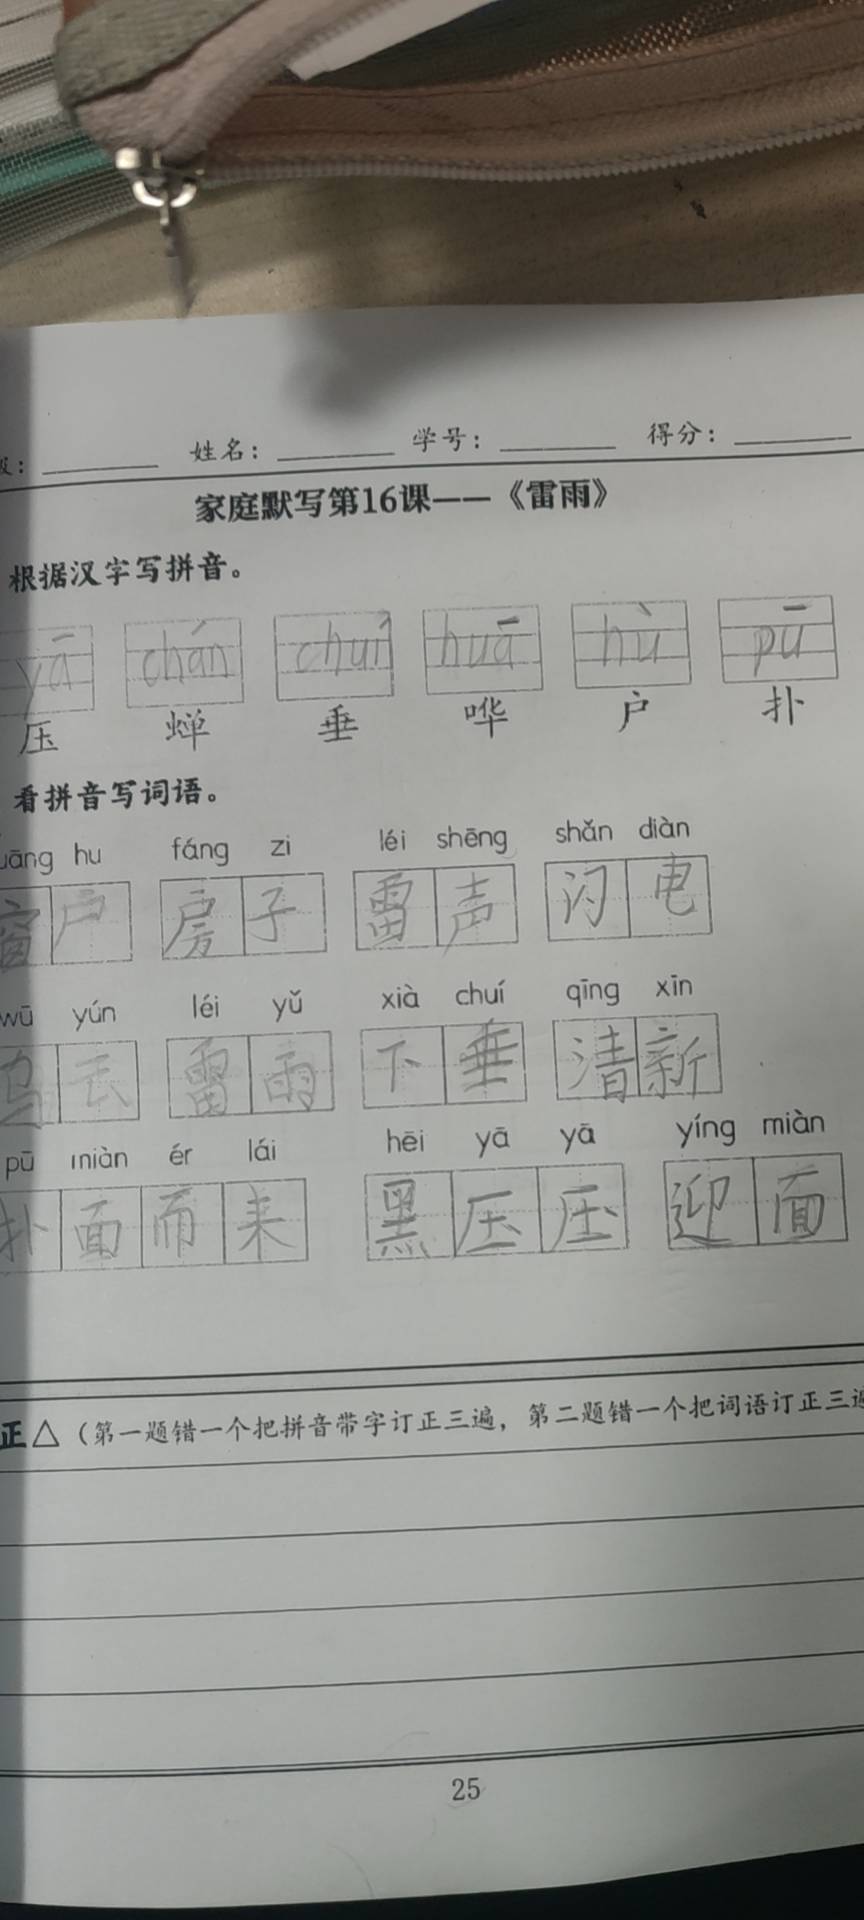 级： 姓名： 学号： 得分：
家庭默写第16课——《雷雨》
根据汉字写拼音。
yā chán chuí huā hù pū
压 蝉 垂 哗 户 扑
看拼音写词语。
uāng hu fáng zi léi shēng shǎn diàn
窗户 房子 雷声 闪电
wū yún léi yǔ xià chuí qīng xīn
乌云 雷雨 下垂 清新
pū miàn ér lái hēi yā yā yíng miàn
扑面而来 黑压压 迎面
正△（第一题错一个把拼音带字订正三遍，第二题错一个把词语订正三遍
25